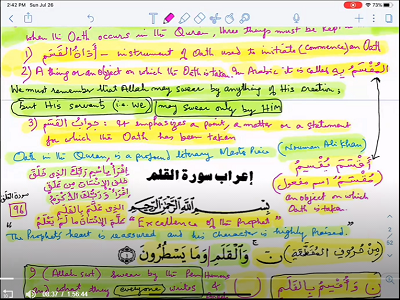 2:42 PM Sun Jul 26
73%
when the Oath occurs in the Quran, three things must be kept
1) أدَاةُ القَسَم - instrument of Oath used to initiate (commence) an Oath
2) A thing or an object on which the Oath is taken. In Arabic it is called المُقْسَمُ بِهِ
We must remember that Allah may swear by anything of His creation;
But His servants (i.e. we) may swear only by Him
3) جوابُ القَسَم : It emphasizes a point, a matter or a statement
for which the Oath has been taken
Oath in the Quran, is a profound literary Masterpiece (Nouman Ali Khan)
أَقْسَمَ يُقْسِمُ
إعراب سورة القلم
مُقْسَمٌ : اسم مفعول
an object on which
Oath is taken.
اقْرَأْ بِاسْمِ رَبِّكَ الَّذِي خَلَقَ
خَلَقَ الْإِنسَانَ مِنْ عَلَقٍ
اقْرَأْ وَرَبُّكَ الْأَكْرَمُ
الَّذِي عَلَّمَ بِالْقَلَمِ
عَلَّمَ الْإِنسَانَ مَا لَمْ يَعْلَمْ
96
بِسْمِ اللَّهِ الرَّحْمَٰنِ الرَّحِيمِ
"Excellence of the Prophet"
"The Prophet's heart is reassured and his character is highly praised."
ن وَالْقَلَمِ وَمَا يَسْطُرُونَ
(مِنْ حُرُوفِ المُقَطَّعَةِ)
I (Allah swt) swear by the Pen
what they everyone writes
ن وَ أُقْسِمُ بِالْقَلَمِ
08:37 / 1:56:44